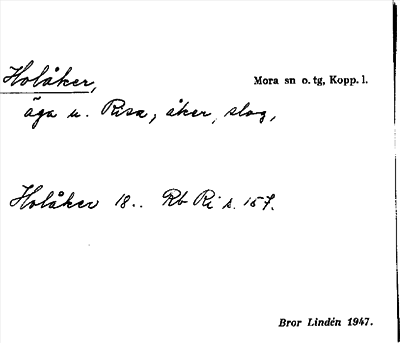 Holåker,
Mora sn o. tg, Kopp. l.
äga u. Risa, åker, slog,
Holåker 18.. Rb Ri s. 157.
Bror Lindén 1947.